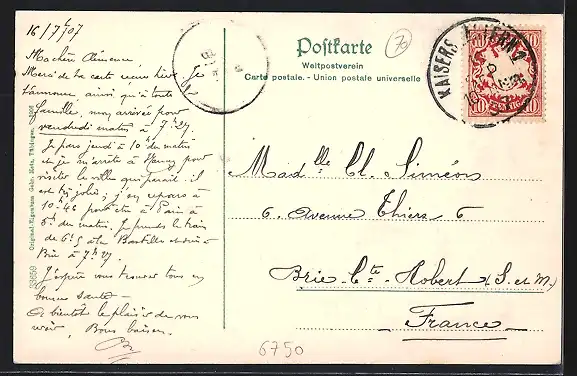 16/7/07
Ma chère Clémence
Merci de ta carte reçue hier. Je
t'annonce ainsi qu'à toute la
famille, mon arrivée pour
vendredi matin à 7h27.
Je pars jeudi à 10h du matin
et je m'arrête à Nancy pour
visiter la ville qui paraît-il
est très jolie; j'en repars à
10.46 pour être à Paris à
5h du matin. Je prends le train
de 6h5 à la Bastille
Brie à 7h27.
J'espère vous trouver tous en
bonne santé —
A bientôt le plaisir de vous
voir, Bons baisers.
Original-Eigentum Gebr. Metz, Tübingen.
Postkarte
Weltpostverein
Carte postale. - Union postale universelle
70
KAISERS
10 10
Madlle Cl. Siméon
6. Avenue Thiers 6
Brie-Cte-Robert (S. et M.)
France
6750